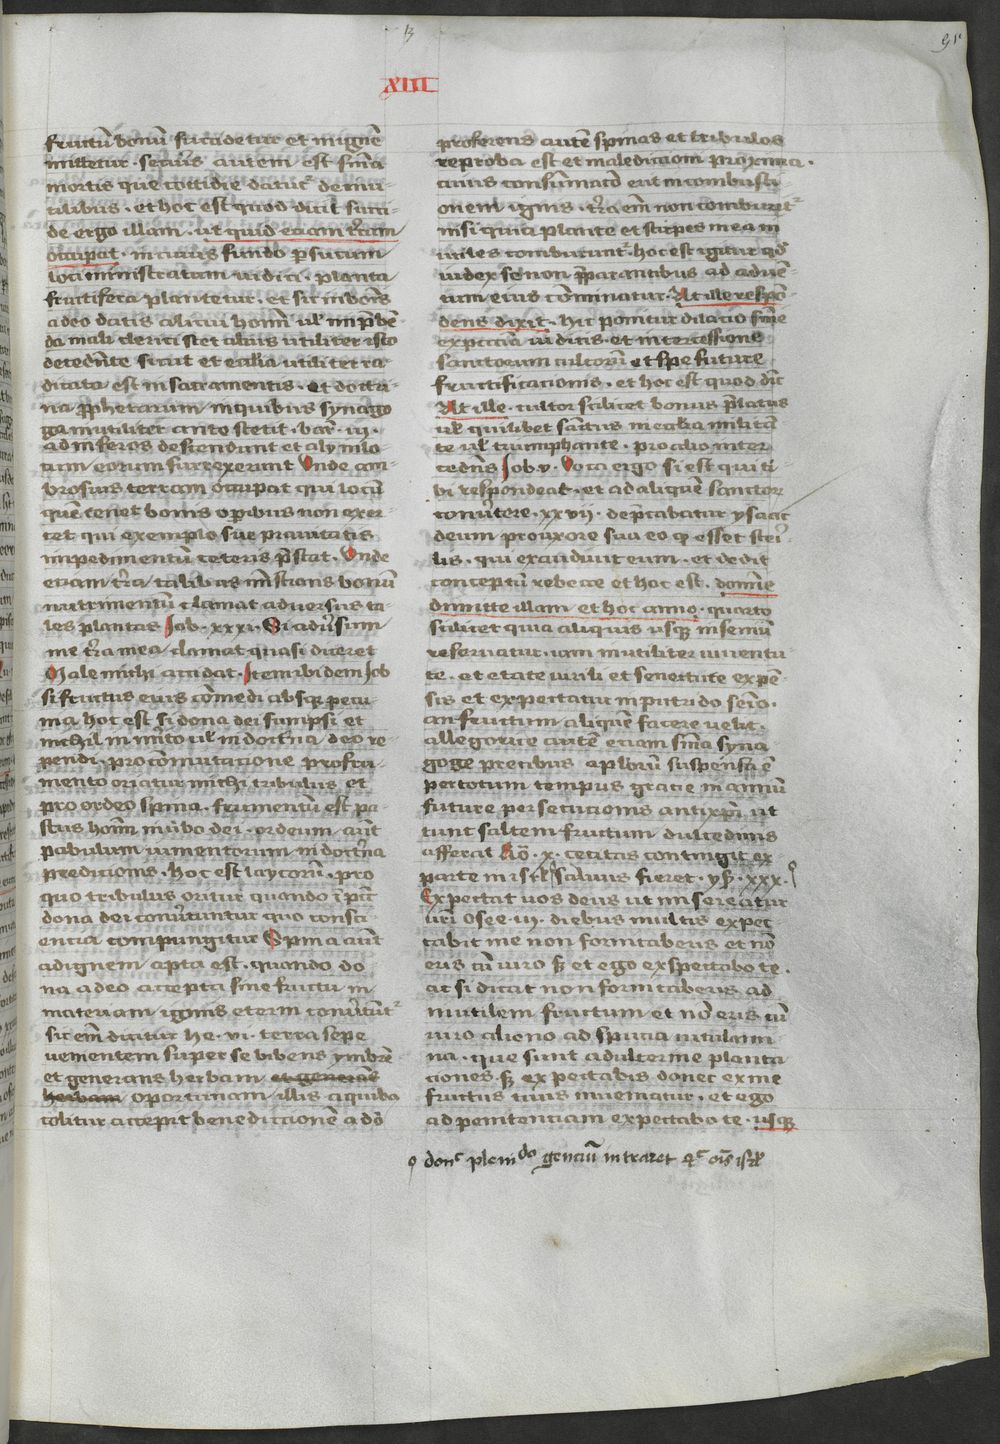 13
91
XIII
fructū bonū succidetur et in ignē
mittetur. securis autem est sn̄ia
mortis que cottidie datur de inu-
tilibus. et hoc est quod dicit succi-
de ergo illam. ut quid etiam t̄ram
occupat. in cuius fundo
loci ministratam planta
fructifera plantetur. et sic in boīs
a deo datis alicui homī ul' in p̄ben
da mali clerici stet alius utiliter isto
decedēte sicut et ecclia utiliter ra-
dicata est in sacramentis. et doctri-
na p̄phetarum in quibus synago
ga inutiliter ante stetit. bar. iij.
ad inferos descendunt et alij in lo-
cum eorum surrexerunt Vnde am-
brosius terram occupat qui locū
quē tenet bonis op̄ibus non exer-
cet qui exemplo sue prauitatis
impedimentū ceteris p̄stat. Vnde
etiam t̄ra talibus bonū
nutrimentū clamat aduersus ta-
les plantas Job. xxxi. Si adu'sum
me t̄ra mea clamat quasi diceret
Male michi accidat. Item ibidem Job
si fructus eius cōmedi absq; pecu
nia hoc est si dona dei sumpsi et
nichil in m̄ito ul' in doct'na deo re-
pendi. pro cōmutacione pro fru-
mento oriatur michi tribulus et
pro ordeo spina. frumentū est pa-
stus homī in u'bo dei. ordeum aūt
pabulum iumentorum in doct'na
predicionis. hoc est laycorū. pro
quo tribulus oritur quando
dona dei conuertuntur quo consci-
encia compungitur Spina aūt
ad ignem apta est. quando do
na a deo accepta sine fructu in
materiam ignis eterni conu'tūt'
sic em̄ dicitur he. vi. terra sepe
uenientem super se bibens ymbrē
et generans herbam et generās
herbam oportunam illis a quibo
colitur accepit benedictionē a dō
proferens autē spinas et tribulos
reproba est et malediccioni proxima.
cuius consūmacō erit in combusti
onem ignis. t̄ra em̄ non comburet'
nisi quia plante et stirpes in ea in
utiles comburunt'. hoc est igitur qd'
iudex se non p̄parantibus ad aduē-
tum eius cōminatur. At ille respō
dens dixit. hic ponitur dilacio sn̄ie
expectacia iudicis. et intercessione
sanctorum cultorū et spe future
fructificacionis. et hoc est quod dic̄
At ille. cultor scilicet bonus p̄latus
ul' quilibet sanctus in ecclia militā
te ul' triumphante. pro alio inter
cedens Job. v. Voca ergo si est qui ti-
bi respondeat. et ad aliquē sanctor
conu'tere. xxvij. dep̄cabatur ysaac
deum pro uxore sua eo q esset steri-
lis. qui exaudiuit eum. et dedit
conceptū rebecce et hoc est. domīe
dimitte illam et hoc anno. quarto
scilicet quia aliquis usq; in seniū
reseruatur. iam inutiliter iuuentu-
te. et etate uirili et senectute expē-
sis et expectatur in putrido senio.
an fructum aliquē facere uelit.
allegorice autē etiam sn̄ia syna
goge precibus ap'lorū suspensa ē
per totum tempus gracie in annū
future persecucionis antixpī ut
tunc saltem fructum dulcedinis
afferat Ro. x. cecitas contingit ex
parte in isr'l saluus fieret. ysa. xxx.
Expectat uos deus ut misereatur
uri osee. iij. diebus multis expec
tabis me non fornicaberis et nō
eris cū uiro s; et ego exspectabo te.
ac si dicat non fornicaberis ad
inutilem fructum et nō eris cū
uiro alieno ad spuria uitulami
na. que sunt adulterine planta
ciones. s; expectabis donec ex me
fructus tuus inueniatur. et ego
ad penitentiam expectabo te. usq;
donc pleni do genciū intraret et sic ois isr'l